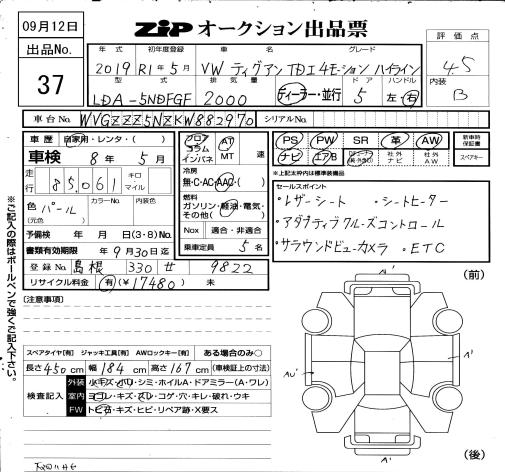 09月12日
ZiP オークション出品票
評価点
出品No.
37
年式 初年度登録 車名 グレード
2019 R1年5月 VW ティグアン TDI 4モーション ハイライン
4.5
型式 排気量 ドア ハンドル
内装
LDA-5NDFGF 2000 ディーラー・並行 5 左・右
B
車台No. WVGZZZ5NZKW882970 シリアルNo.
車歴 自家用・レンタ・( )
フロア コラム インパネ
AT MT 速
PS PW SR 革 AW
新車時保証書
車検 8年5月
ナビ エアB 社外ナビ 社外AW
スペアキー
走行 85,061 キロ マイル
冷房
無・C・AC・AAC・( )
*上記太枠内は標準装備品
色 パール カラーNo. 内装色
(元色)
燃料
ガソリン・軽油・電気・その他( )
セールスポイント
・レザーシート ・シートヒーター
予備検 年 月 日(3・8)No.
Nox 適合・非適合
・アダプティブクルーズコントロール
書類有効期限 年9月30日迄
乗車定員 5名
・サラウンドビューカメラ ・ETC
登録No. 島根 330 せ 9822
リサイクル料金 有(¥17480) 未
※ご記入の際はボールペンで強くご記入下さい。
(注意事項)
(前)
A'
スペアタイヤ[有] ジャッキ工具[有] AWロックキー[有] ある場合のみ○
長さ450cm 幅184cm 高さ167cm (車検証上の寸法)
A'
検査記入
外装 小キズ・ハリ・シミ・ホイルA・ドアミラー(A・ワレ)
室内 ヨゴレ・キズ・スレ・コゲ・穴・キレ・破れ・ウキ
FW トビ石・キズ・ヒビ・リペア跡・X要ス
A'
(後)